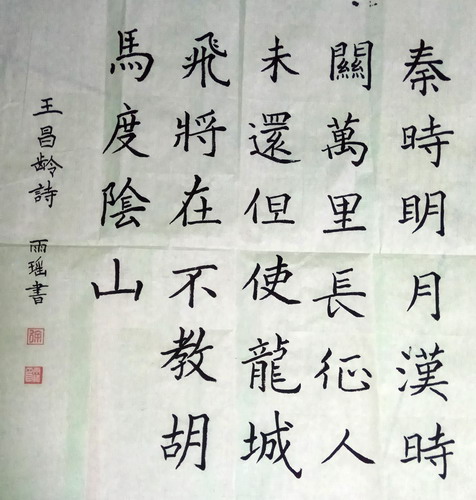 秦時明月漢時
關萬里長征人
未還但使龍城
飛將在不教胡
馬度陰山
王昌龄詩 雨瑶書